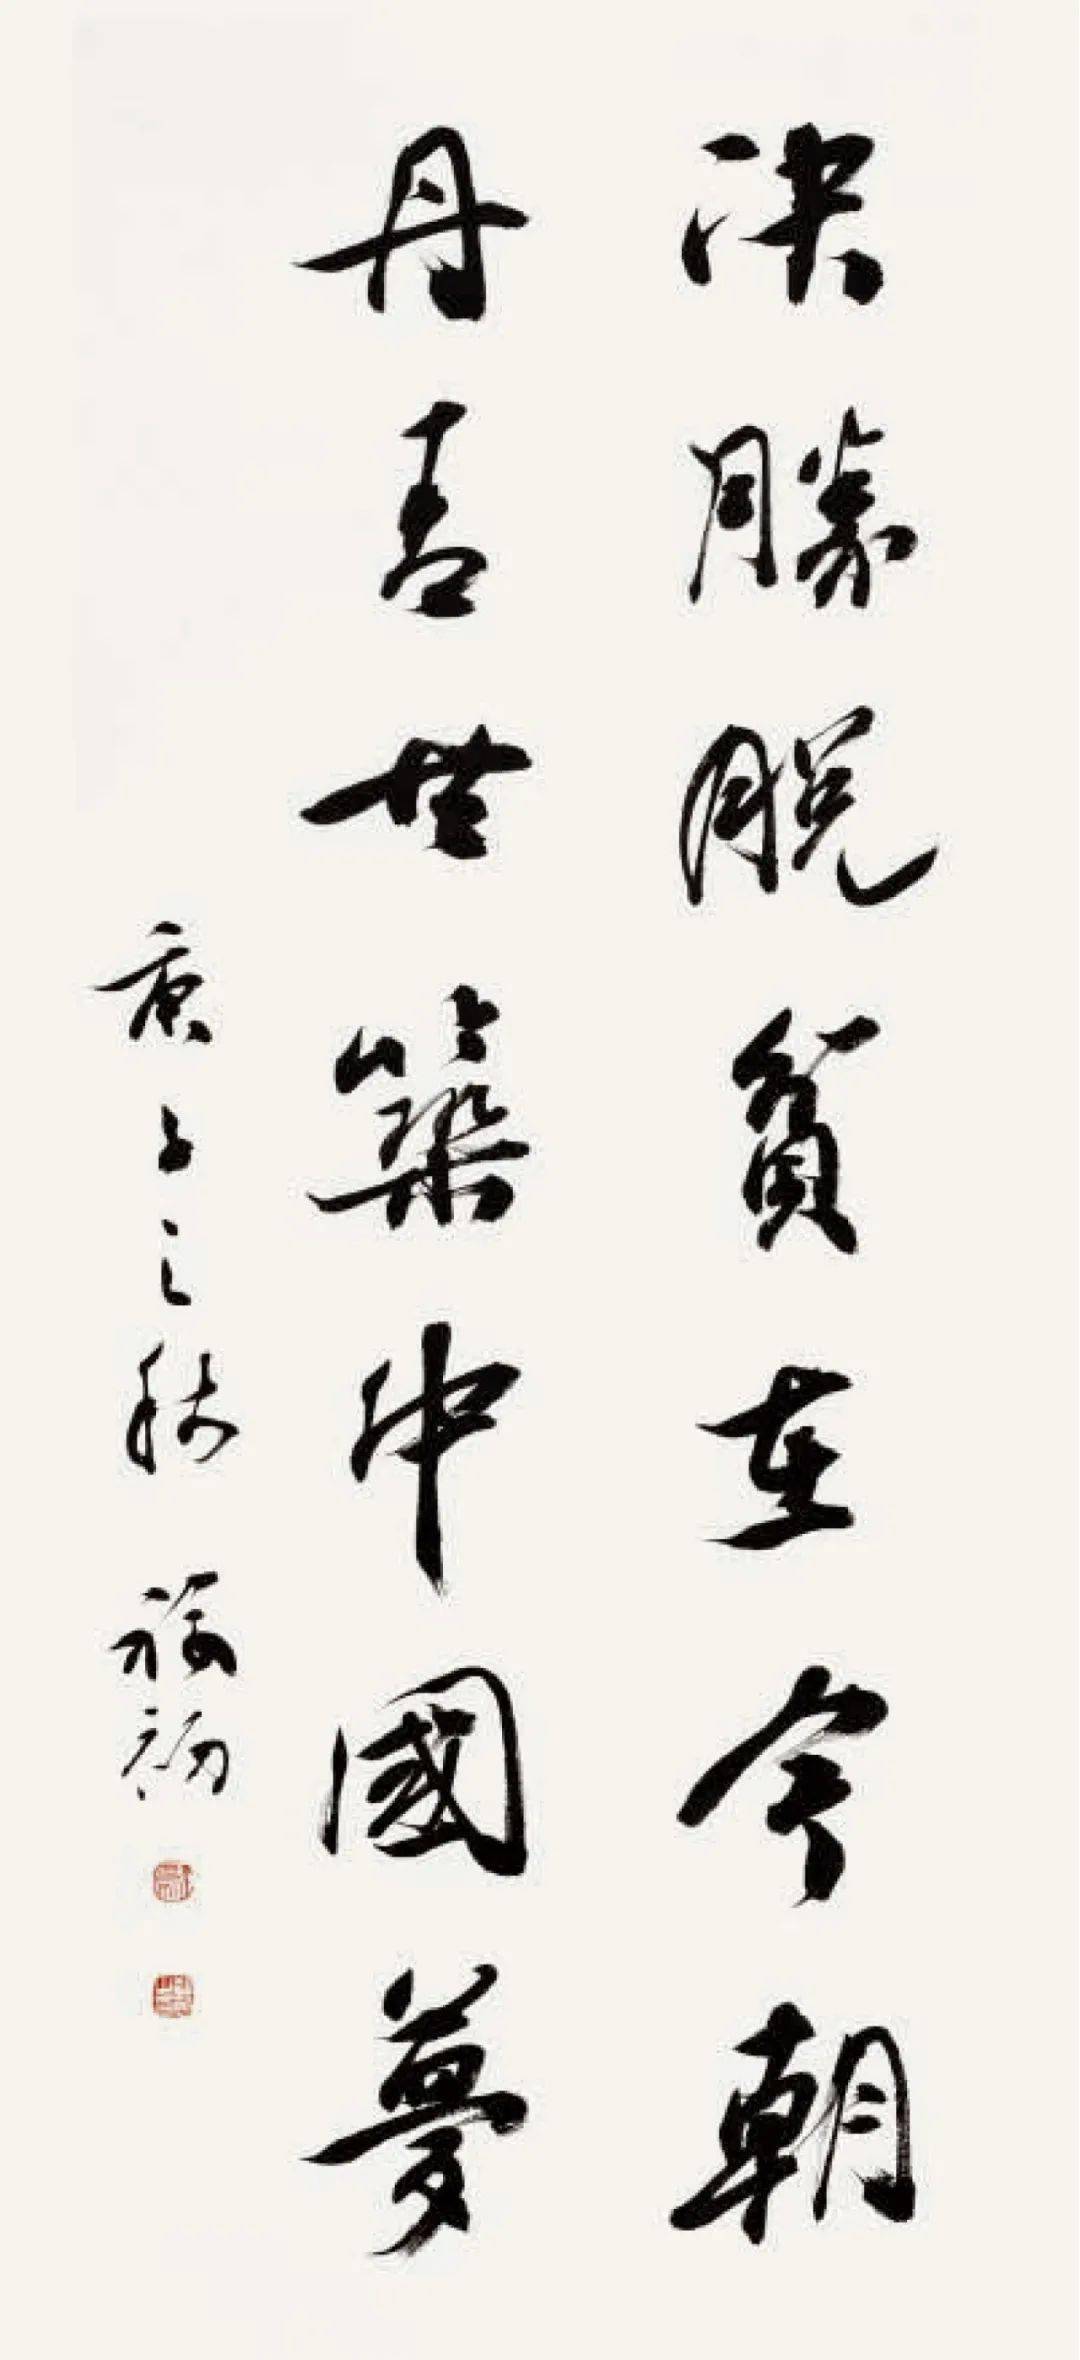 决勝脱貧在今朝
丹青共築中國夢
庚子之秋